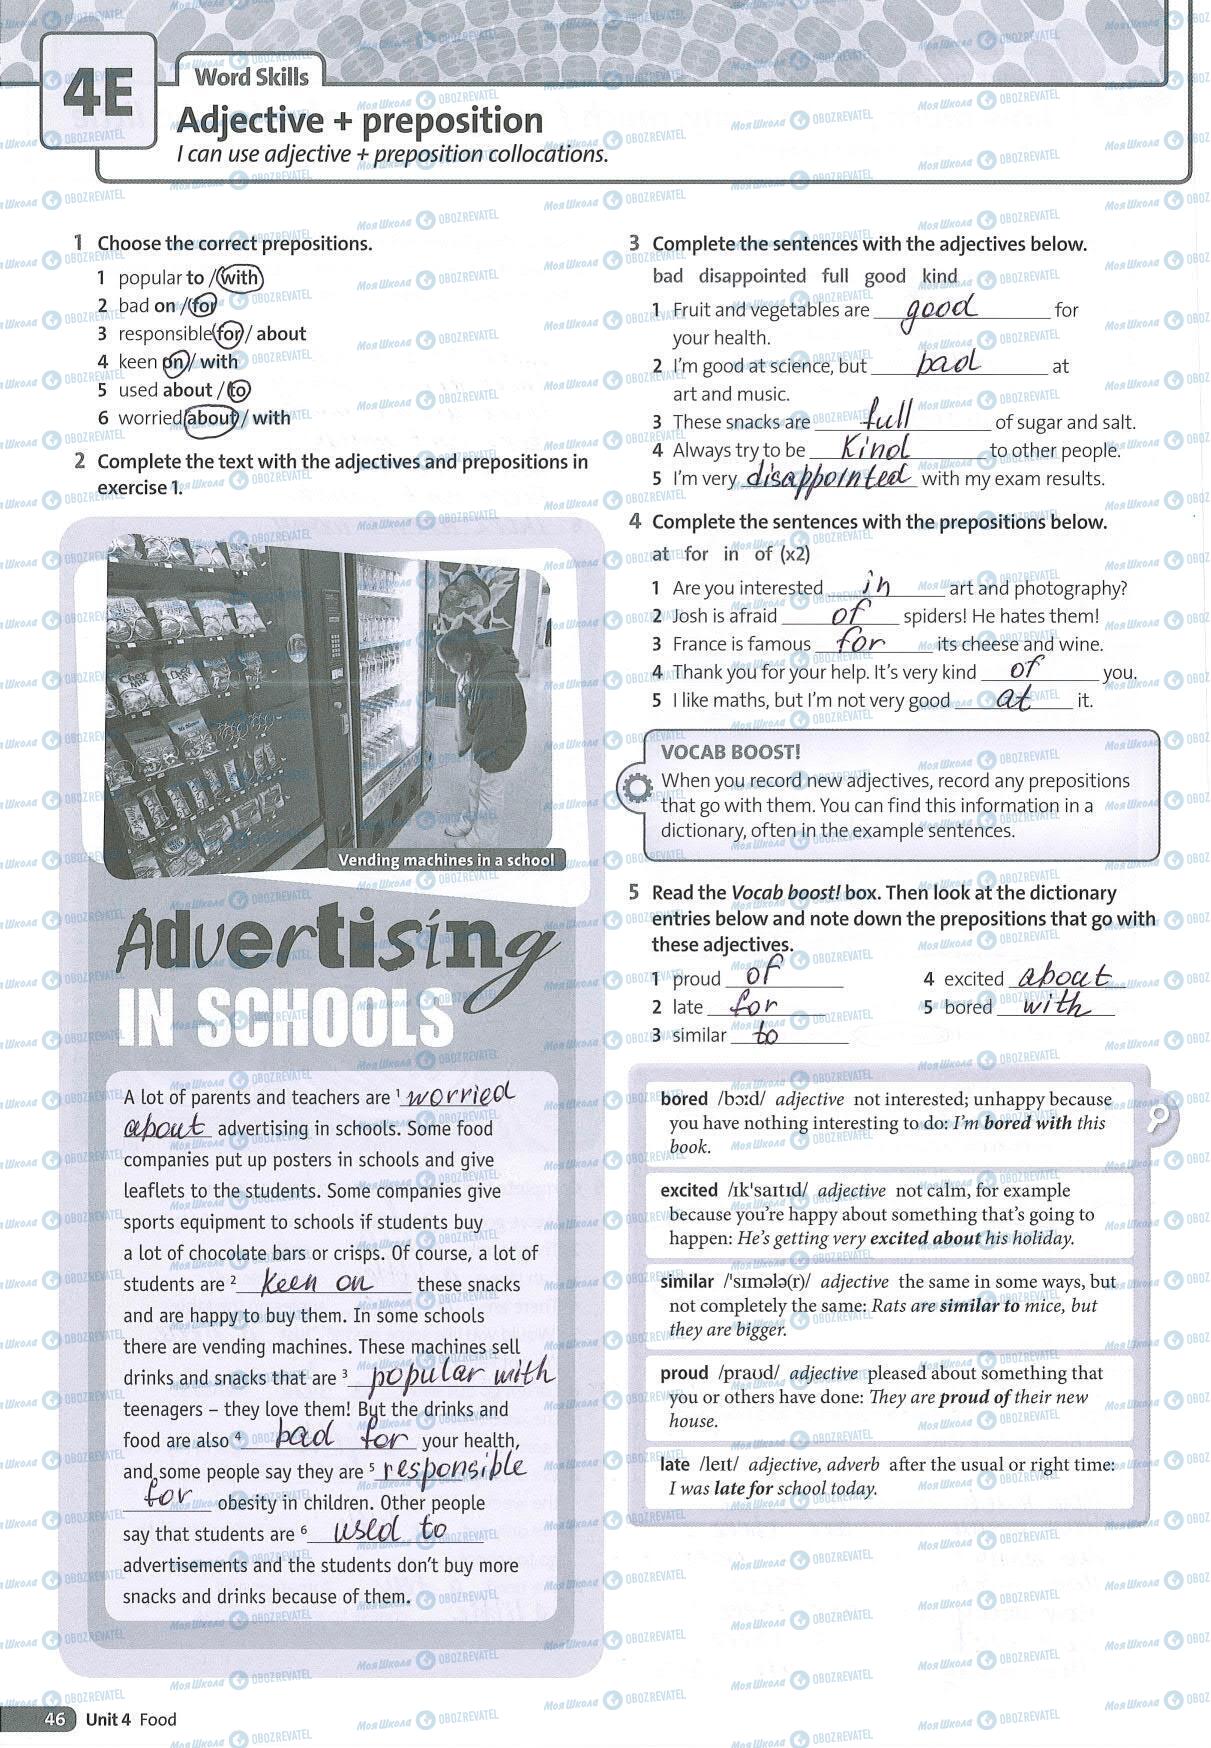 4E
Word Skills
Adjective + preposition
I can use adjective + preposition collocations.
1 Choose the correct prepositions.
1 popular to / with
2 bad on / for
3 responsible for / about
4 keen on / with
5 used about / to
6 worried about / with
2 Complete the text with the adjectives and prepositions in
exercise 1.
Vending machines in a school
Advertising
IN SCHOOLS
A lot of parents and teachers are 1 worried
about advertising in schools. Some food
companies put up posters in schools and give
leaflets to the students. Some companies give
sports equipment to schools if students buy
a lot of chocolate bars or crisps. Of course, a lot of
students are 2 keen on these snacks
and are happy to buy them. In some schools
there are vending machines. These machines sell
drinks and snacks that are 3 popular with
teenagers – they love them! But the drinks and
food are also 4 bad for your health,
and some people say they are 5 responsible
for obesity in children. Other people
say that students are 6 used to
advertisements and the students don't buy more
snacks and drinks because of them.
3 Complete the sentences with the adjectives below.
bad disappointed full good kind
1 Fruit and vegetables are good for
your health.
2 I'm good at science, but bad at
art and music.
3 These snacks are full of sugar and salt.
4 Always try to be kind to other people.
5 I'm very disappointed with my exam results.
4 Complete the sentences with the prepositions below.
at for in of (x2)
1 Are you interested in art and photography?
2 Josh is afraid of spiders! He hates them!
3 France is famous for its cheese and wine.
4 Thank you for your help. It's very kind of you.
5 I like maths, but I'm not very good at it.
VOCAB BOOST!
When you record new adjectives, record any prepositions
that go with them. You can find this information in a
dictionary, often in the example sentences.
5 Read the Vocab boost! box. Then look at the dictionary
entries below and note down the prepositions that go with
these adjectives.
1 proud of
2 late for
3 similar to
4 excited about
5 bored with
bored /bɔːd/ adjective not interested; unhappy because
you have nothing interesting to do: I'm bored with this
book.
excited /ɪkˈsaɪtɪd/ adjective not calm, for example
because you're happy about something that's going to
happen: He's getting very excited about his holiday.
similar /ˈsɪmələ(r)/ adjective the same in some ways, but
not completely the same: Rats are similar to mice, but
they are bigger.
proud /praʊd/ adjective pleased about something that
you or others have done: They are proud of their new
house.
late /leɪt/ adjective, adverb after the usual or right time:
I was late for school today.
46 Unit 4 Food
Моя Школа OBOZREVATEL